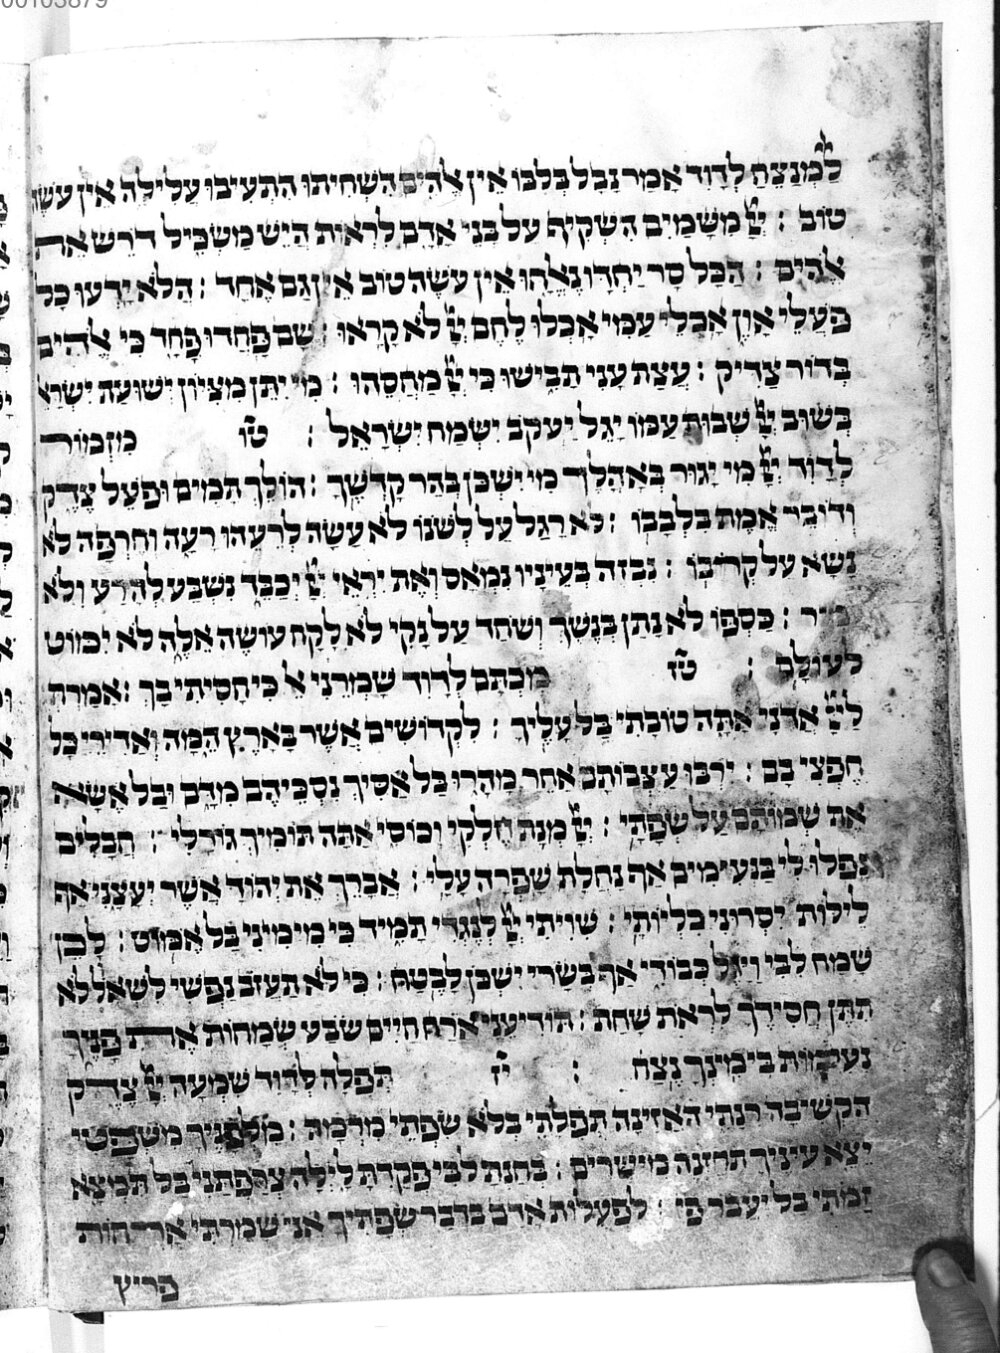 00103879
לַמְנַצֵחַ לְדָוִד אָמַר נָבָל בְּלִבּוֹ אֵין אֱלֹהִים הִשְׁחִיתוּ הִתְעִיבוּ עֲלִילָה אֵין עֹשֵׂה
טוֹב : יְיָ מִשָּׁמַיִם הִשְׁקִיף עַל בְּנֵי אָדָם לִרְאוֹת הֲיֵשׁ מַשְׂכִּיל דֹרֵשׁ אֶת
אֱלֹהִים : הַכֹּל סָר יַחְדָו נֶאֱלָחוּ אֵין עֹשֵׂה טוֹב אֵין גַם אֶחָד : הֲלֹא יָדְעוּ כָּל
פֹּעֲלֵי אָוֶן אֹכְלֵי עַמִּי אָכְלוּ לֶחֶם יְיָ לֹא קָרָאוּ : שָׁם פָּחֲדוּ פָחַד כִּי אֱלֹהִים
בְּדוֹר צַדִיק : עֲצַת עָנִי תָבִישׁוּ כִּי יְיָ מַחְסֵהוּ : מִי יִתֵּן מִצִּיוֹן יְשׁוּעַת יִשְׂרָא
בְּשׁוּב יְיָ שְׁבוּת עַמּוֹ יָגֵל יַעֲקֹב יִשְׂמַח יִשְׂרָאֵל : טו מִזְמוֹר
לְדָוִד יְיָ מִי יָגוּר בְּאָהֳלֶיךָ מִי יִשְׁכֹּן בְּהַר קָדְשֶׁךָ : הוֹלֵךְ תָּמִים וּפֹעֵל צֶדֶק
וְדוֹבֵר אֱמֶת בִּלְבָבוֹ : לֹא רָגַל עַל לְשֹׁנוֹ לֹא עָשָׂה לְרֵעֵהוּ רָעָה וְחֶרְפָּה לֹא
נָשָׂא עַל קְרֹבוֹ : נִבְזֶה בְּעֵינָיו נִמְאָס וְאֶת יִרְאֵי יְיָ יְכַבֵּד נִשְׁבַּע לְהָרַע וְלֹא
כַּסְפּוֹ לֹא נָתַן בְּנֶשֶׁךְ וְשֹׁחַד עַל נָקִי לֹא לָקָח עוֹשֵׂה אֵלֶּה לֹא יִמּוֹט
לְעוֹלָם : טז מִכְתָּם לְדָוִד שָׁמְרֵנִי אֵ כִּי חָסִיתִי בָךְ : אָמַרְתְּ
לַיְיָ אֲדֹנָי אַתָּה טוֹבָתִי בַּל עָלֶיךָ : לִקְדוֹשִׁים אֲשֶׁר בָּאָרֶץ הֵמָּה וְאַדִּירֵי כָּל
חֶפְצִי בָם : יִרְבּוּ עַצְּבוֹתָם אַחֵר מָהָרוּ בַּל אַסִּיךְ נִסְכֵּיהֶם מִדָּם וּבַל אֶשָּׂא
אֶת שְׁמוֹתָם עַל שְׂפָתָי : יְיָ מְנָת חֶלְקִי וְכוֹסִי אַתָּה תּוֹמִיךְ גּוֹרָלִי : חֲבָלִים
נָפְלוּ לִי בַּנְּעִימִים אַף נַחֲלָת שָׁפְרָה עָלָי : אֲבָרֵךְ אֶת יְהֹוָד אֲשֶׁר יְעָצָנִי אַף
לֵילוֹת יִסְּרוּנִי כִלְיוֹתָי : שִׁוִּיתִי יְיָ לְנֶגְדִּי תָמִיד כִּי מִימִינִי בַּל אֶמּוֹט : לָכֵן
שָׂמַח לִבִּי וַיָּגֶל כְּבוֹדִי אַף בְּשָׂרִי יִשְׁכֹּן לָבֶטַח : כִּי לֹא תַעֲזֹב נַפְשִׁי לִשְׁאֹל לֹא
תִתֵּן חֲסִידְךָ לִרְאוֹת שָׁחַת : תּוֹדִיעֵנִי אֹרַח חַיִּים שֹׂבַע שְׂמָחוֹת אֶת פָּנֶיךָ
נְעִימוֹת בִּימִינְךָ נֶצַח : יז תְּפִלָּה לְדָוִד שִׁמְעָה יְיָ צֶדֶק
הַקְשִׁיבָה רִנָּתִי הַאֲזִינָה תְפִלָּתִי בְּלֹא שִׂפְתֵי מִרְמָה : מִלְּפָנֶיךָ מִשְׁפָּטִי
יֵצֵא עֵינֶיךָ תֶּחֱזֶינָה מֵישָׁרִים : בָּחַנְתָּ לִבִּי פָּקַדְתָּ לַיְלָה צְרַפְתַּנִי בַל תִּמְצָא
זַמֹּתִי בַּל יַעֲבָר פִּי : לִפְעֻלּוֹת אָדָם בִּדְבַר שְׂפָתֶיךָ אֲנִי שָׁמַרְתִּי אָרְחוֹת
פריץ